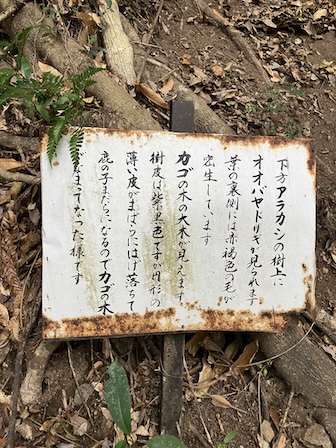 下方アラカシの樹上に
オオバヤドリギが見られます
葉の裏側には赤褐色の毛が
密生しています
カゴの木の大木が見えます
樹皮は紫黒色ですが円形の
薄い皮がまばらにはげ落ちて
鹿の子まだらになるのでカゴの木
となまってなった様です